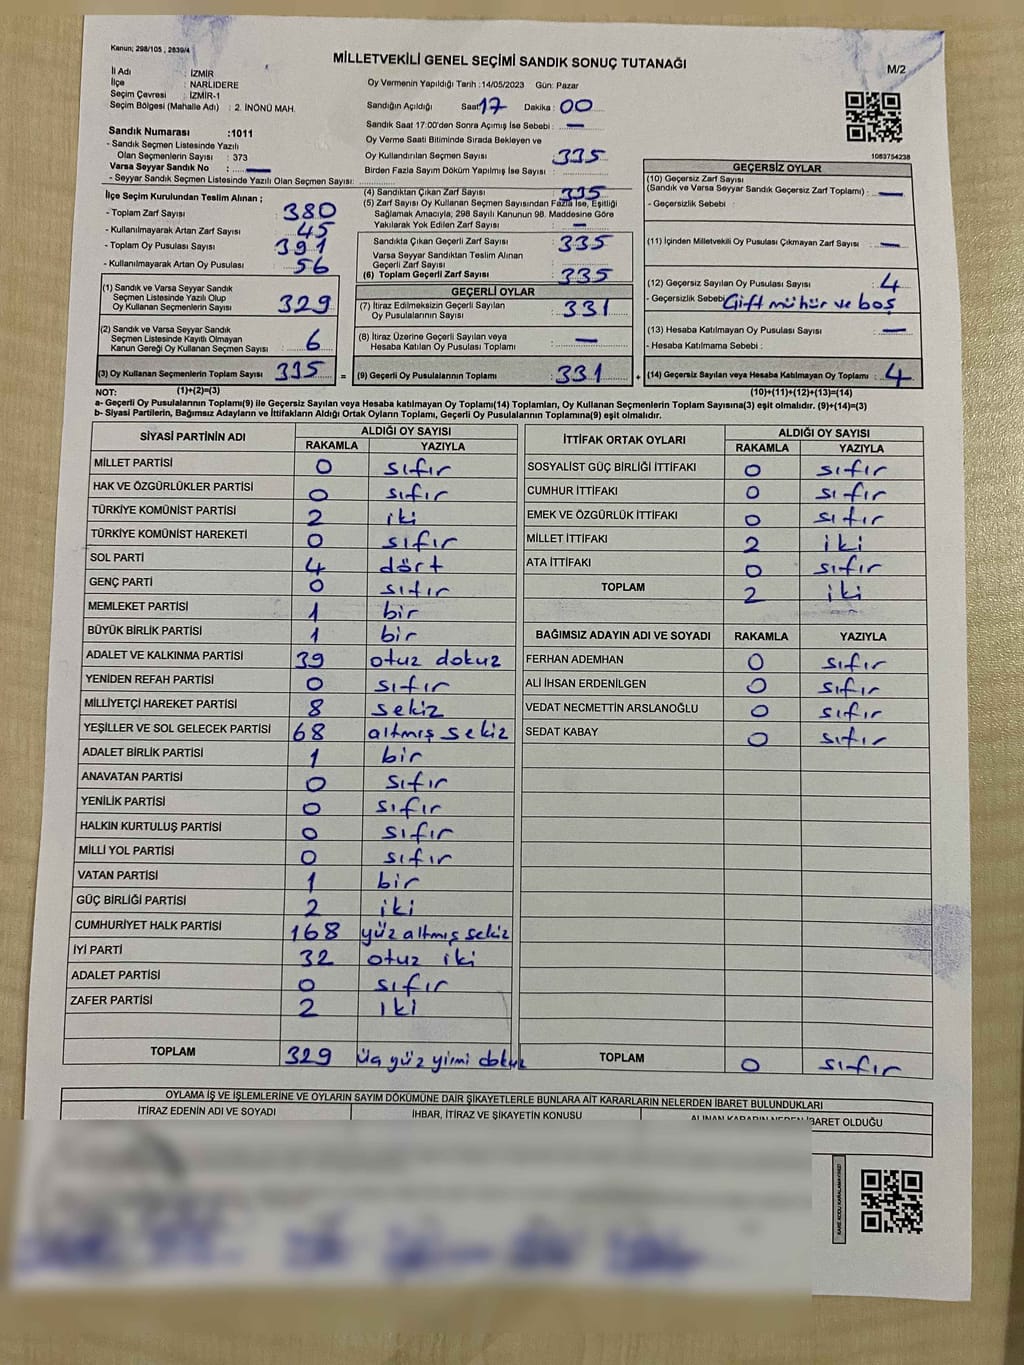 Kanun; 298/105 , 2839/4
MİLLETVEKİLİ GENEL SEÇİMİ SANDIK SONUÇ TUTANAĞI
M/2
İl Adı : İZMİR
İlçe : NARLIDERE
Seçim Çevresi : İZMİR-1
Seçim Bölgesi (Mahalle Adı) : 2. İNÖNÜ MAH.
Oy Vermenin Yapıldığı Tarih :14/05/2023 Gün: Pazar
Sandığın Açıldığı Saat: 17 Dakika : 00
Sandık Saat 17:00'den Sonra Açımış İse Sebebi : —
Oy Verme Saati Bitiminde Sırada Bekleyen ve
Oy Kullandırılan Seçmen Sayısı 335
Birden Fazla Sayım Döküm Yapılmış İse Sayısı :
1083754238
Sandık Numarası :1011
- Sandık Seçmen Listesinde Yazılı
Olan Seçmenlerin Sayısı : 373
Varsa Seyyar Sandık No : —
- Seyyar Sandık Seçmen Listesinde Yazılı Olan Seçmen Sayısı:
İlçe Seçim Kurulundan Teslim Alınan ;
- Toplam Zarf Sayısı 380
- Kullanılmayarak Artan Zarf Sayısı 45
- Toplam Oy Pusulası Sayısı 391
- Kullanılmayarak Artan Oy Pusulası 56
(1) Sandık ve Varsa Seyyar Sandık
Seçmen Listesinde Yazılı Olup
Oy Kullanan Seçmenlerin Sayısı 329
(2) Sandık ve Varsa Seyyar Sandık
Seçmen Listesinde Kayıtlı Olmayan
Kanun Gereği Oy Kullanan Seçmen Sayısı 6
(3) Oy Kullanan Seçmenlerin Toplam Sayısı 335 =
(4) Sandıktan Çıkan Zarf Sayısı 335
(5) Zarf Sayısı Oy Kullanan Seçmen Sayısından Fazla İse, Eşitliği
Sağlamak Amacıyla, 298 Sayılı Kanunun 98. Maddesine Göre
Yakılarak Yok Edilen Zarf Sayısı : —
Sandıkta Çıkan Geçerli Zarf Sayısı 335
Varsa Seyyar Sandıktan Teslim Alınan
Geçerli Zarf Sayısı
(6) Toplam Geçerli Zarf Sayısı 335
GEÇERLİ OYLAR
(7) İtiraz Edilmeksizin Geçerli Sayılan
Oy Pusulalarının Sayısı 331
(8) İtiraz Üzerine Geçerli Sayılan veya
Hesaba Katılan Oy Pusulası Toplamı —
(9) Geçerli Oy Pusulalarının Toplamı 331 +
GEÇERSİZ OYLAR
(10) Geçersiz Zarf Sayısı
(Sandık ve Varsa Seyyar Sandık Geçersiz Zarf Toplamı) : —
- Geçersizlik Sebebi :
(11) İçinden Milletvekili Oy Pusulası Çıkmayan Zarf Sayısı : —
(12) Geçersiz Sayılan Oy Pusulası Sayısı : 4
- Geçersizlik Sebebi: Çift mühür ve boş
(13) Hesaba Katılmayan Oy Pusulası Sayısı : —
- Hesaba Katılmama Sebebi :
(14) Geçersiz Sayılan veya Hesaba Katılmayan Oy Toplamı : 4
NOT: (1)+(2)=(3) (10)+(11)+(12)+(13)=(14)
a- Geçerli Oy Pusulalarının Toplamı(9) ile Geçersiz Sayılan veya Hesaba katılmayan Oy Toplamı(14) Toplamları, Oy Kullanan Seçmenlerin Toplam Sayısına(3) eşit olmalıdır. (9)+(14)=(3)
b- Siyasi Partilerin, Bağımsız Adayların ve İttifakların Aldığı Ortak Oyların Toplamı, Geçerli Oy Pusulalarının Toplamına(9) eşit olmalıdır.
SİYASİ PARTİNİN ADI ALDIĞI OY SAYISI
RAKAMLA YAZIYLA
MİLLET PARTİSİ 0 sıfır
HAK VE ÖZGÜRLÜKLER PARTİSİ 0 sıfır
TÜRKİYE KOMÜNİST PARTİSİ 2 iki
TÜRKİYE KOMÜNİST HAREKETİ 0 sıfır
SOL PARTİ 4 dört
GENÇ PARTİ 0 sıfır
MEMLEKET PARTİSİ 1 bir
BÜYÜK BİRLİK PARTİSİ 1 bir
ADALET VE KALKINMA PARTİSİ 39 otuz dokuz
YENİDEN REFAH PARTİSİ 0 sıfır
MİLLİYETÇİ HAREKET PARTİSİ 8 sekiz
YEŞİLLER VE SOL GELECEK PARTİSİ 68 altmış sekiz
ADALET BİRLİK PARTİSİ 1 bir
ANAVATAN PARTİSİ 0 sıfır
YENİLİK PARTİSİ 0 sıfır
HALKIN KURTULUŞ PARTİSİ 0 sıfır
MİLLİ YOL PARTİSİ 0 sıfır
VATAN PARTİSİ 1 bir
GÜÇ BİRLİĞİ PARTİSİ 2 iki
CUMHURİYET HALK PARTİSİ 168 yüz altmış sekiz
İYİ PARTİ 32 otuz iki
ADALET PARTİSİ 0 sıfır
ZAFER PARTİSİ 2 iki
TOPLAM 329 üç yüz yirmi dokuz
İTTİFAK ORTAK OYLARI ALDIĞI OY SAYISI
RAKAMLA YAZIYLA
SOSYALİST GÜÇ BİRLİĞİ İTTİFAKI 0 sıfır
CUMHUR İTTİFAKI 0 sıfır
EMEK VE ÖZGÜRLÜK İTTİFAKI 0 sıfır
MİLLET İTTİFAKI 2 iki
ATA İTTİFAKI 0 sıfır
TOPLAM 2 iki
BAĞIMSIZ ADAYIN ADI VE SOYADI RAKAMLA YAZIYLA
FERHAN ADEMHAN 0 sıfır
ALİ İHSAN ERDENİLGEN 0 sıfır
VEDAT NECMETTİN ARSLANOĞLU 0 sıfır
SEDAT KABAY 0 sıfır
TOPLAM 0 sıfır
OYLAMA İŞ VE İŞLEMLERİNE VE OYLARIN SAYIM DÖKÜMÜNE DAİR ŞİKAYETLERLE BUNLARA AİT KARARLARIN NELERDEN İBARET BULUNDUKLARI
İTİRAZ EDENİN ADI VE SOYADI İHBAR, İTİRAZ VE ŞİKAYETİN KONUSU ALINAN KARARIN NEDEN İBARET OLDUĞU